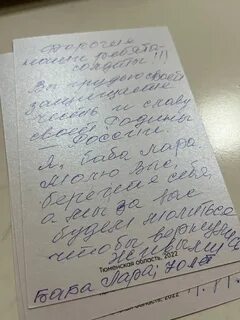 Дорогие
наши ребята
солдаты!!!
Вы грудью своей
защищаете
честь и славу
своей Родины
– России.
Я, баба Лара
молю Вас,
берегите себя,
а мы за Вас
будем молиться
чтобы вернулись
живыми
Тюменская область, 2022
Баба Лара,
2022